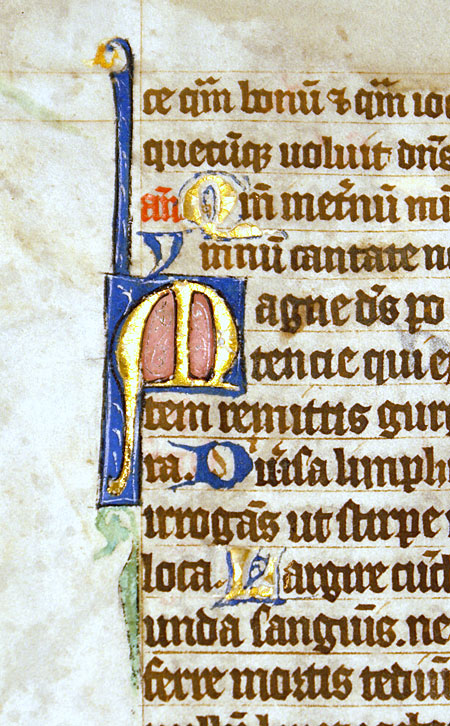 ce qm̄ bonū ⁊ qm̄ ioc
quecūqꝫ uoluit dn̄s
an̄ Qm̄ in et̄nū mi
Ymnū cantate no
Magne ds̄ po
tencie qui ex
tem remittis gur
ra. Dim̄sa limphi
irrogās ut stirpe
loca. Largire cūct
unda sanguīs. ne
ferre mortis tediū